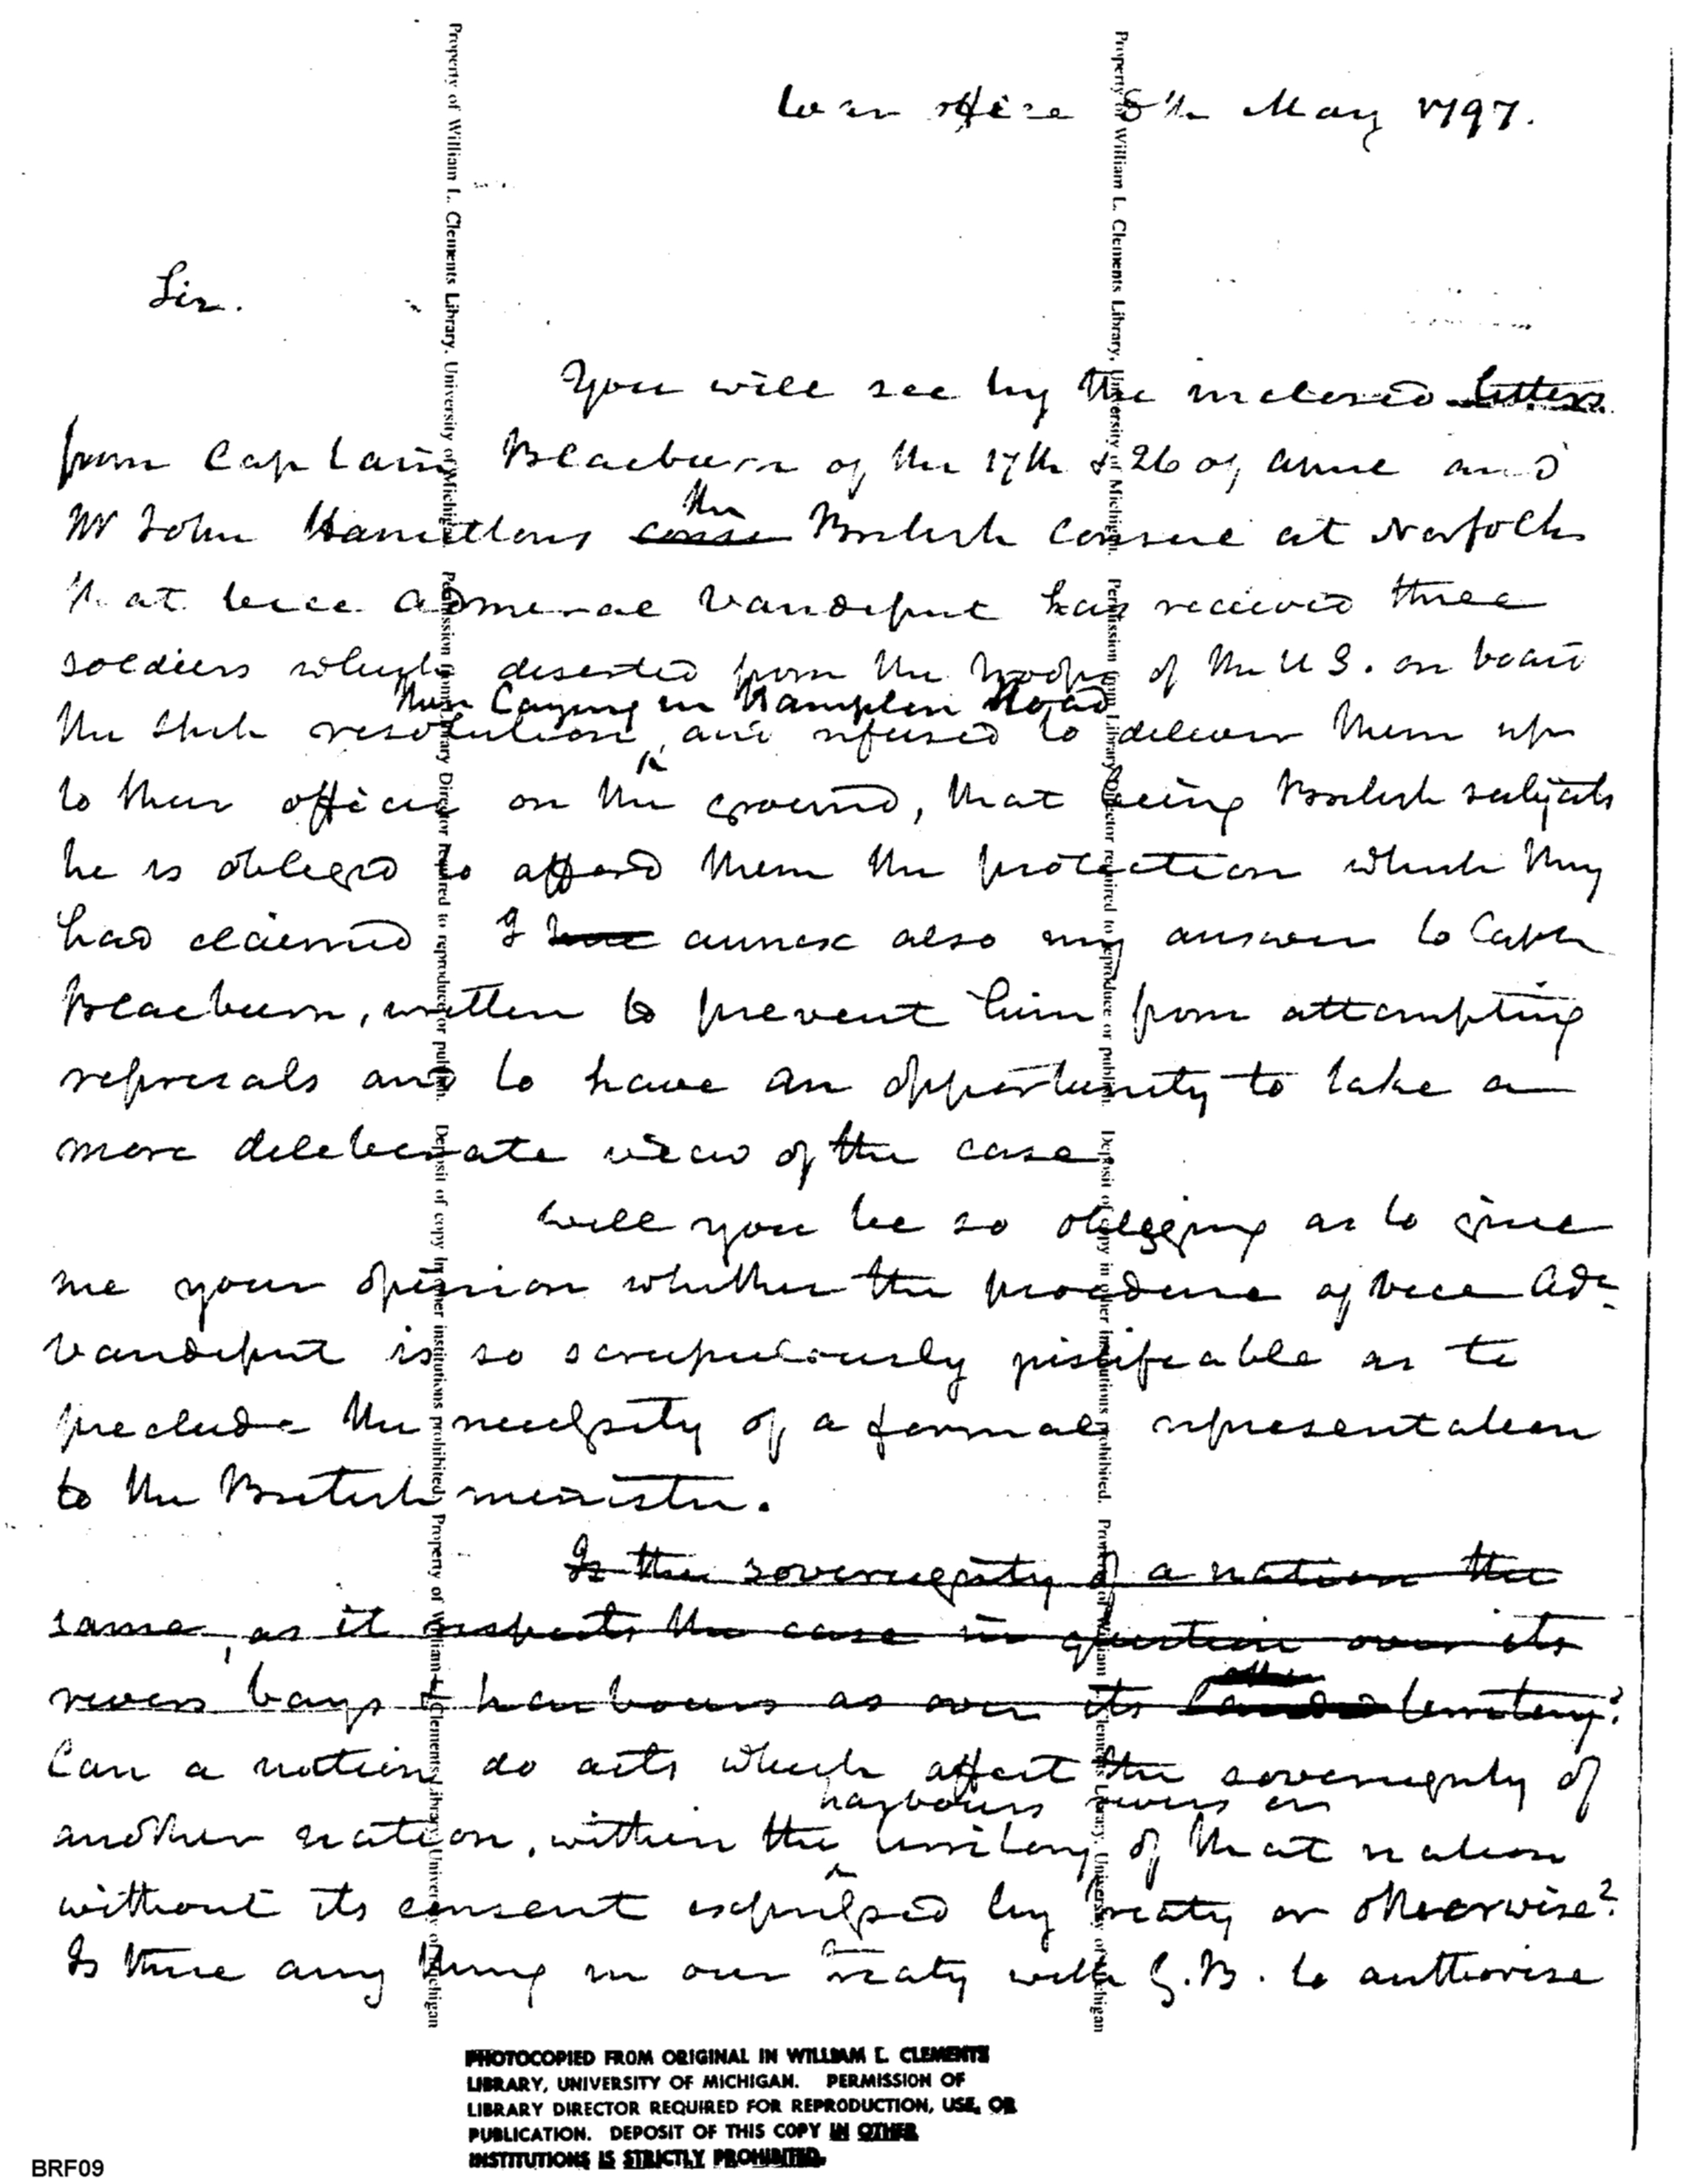 War office 8th May 1797.
Sir.
You will see by the inclosed letters
from Captain Blackburn of the 17th & 26 of and
Mr John Hamiltons conse the British Consul at Norfolk
that vice admiral Vandeput has received three
soldiers which deserted from the troops of the U S. on board
the Ship resolution then Laying in Hampton Road and refused to deliver them up
to their officer on the ground, that being British subjects
he is obliged to afford them the protection which they
had claimed I have annex also my answer to Captn
Blackburn, written to prevent him from attempting
reprisals and to have an opportunity to take a
more deliberate view of the case.
Will you be so obliging as to give
me your opinion whether the procedure of vice Adl
Vandeput is so scrupulously justifiable as to
preclude the necessity of a formal representation
to the British minister.
Is the sovereignity of a nation the
same, as it respects the case in question over its
rivers bays & harbours as over its territory?
Can a nation do acts which affect the sovereignty of
another nation, within the harbours rivers or territory of that nation
without its consent expressed by treaty or otherwise?
Is there any thing in our treaty with G.B. to authorise
PHOTOCOPIED FROM ORIGINAL IN WILLIAM L. CLEMENTS
LIBRARY, UNIVERSITY OF MICHIGAN. PERMISSION OF
LIBRARY DIRECTOR REQUIRED FOR REPRODUCTION, USE, OR
PUBLICATION. DEPOSIT OF THIS COPY IN OTHER
INSTITUTIONS IS STRICTLY PROHIBITED.
BRF09
Property of William L. Clements Library, University of Michigan. Permission from Library Director required to reproduce or publish. Deposit of copy in other institutions prohibited. Property of William L. Clements Library, University of Michigan
Property of William L. Clements Library, University of Michigan. Permission from Library Director required to reproduce or publish. Deposit of copy in other institutions prohibited. Property of William L. Clements Library, University of Michigan